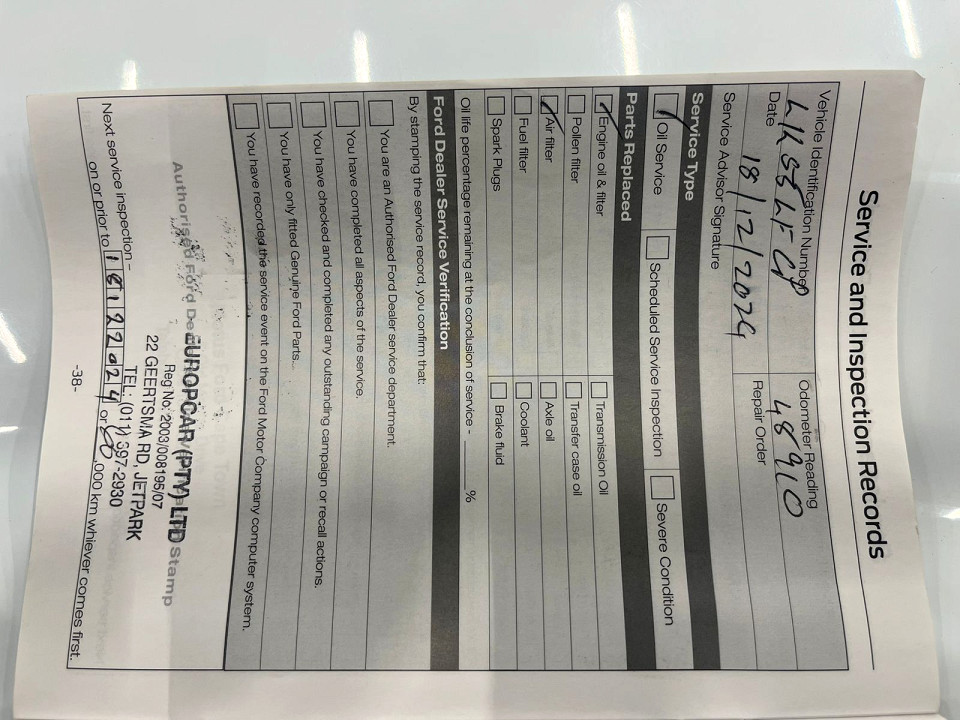 Service and Inspection Records
Vehicle Identification Number
Odometer Reading
48910
Date
Repair Order
18/12/2024
Service Advisor Signature
Service Type
Oil Service
Scheduled Service Inspection
Severe Condition
Parts Replaced
Engine oil & filter
Transmission Oil
Pollen filter
Transfer case oil
Air filter
Axle oil
Fuel filter
Coolant
Spark Plugs
Brake fluid
Oil life percentage remaining at the conclusion of service - ______%
Ford Dealer Service Verification
By stamping the service record, you confirm that:
You are an Authorised Ford Dealer service department.
You have completed all aspects of the service.
You have checked and completed any outstanding campaign or recall actions.
You have only fitted Genuine Ford Parts.
You have recorded the service event on the Ford Motor Company computer system.
Authorised Ford Dealer Stamp
EUROPCAR (PTY) LTD
Reg No: 2003/008195/07
22 GEERTSIMA RD, JETPARK
TEL: (011) 397-2930
Next service inspection –
on or prior to or ,000 km whiever comes first.
-38-